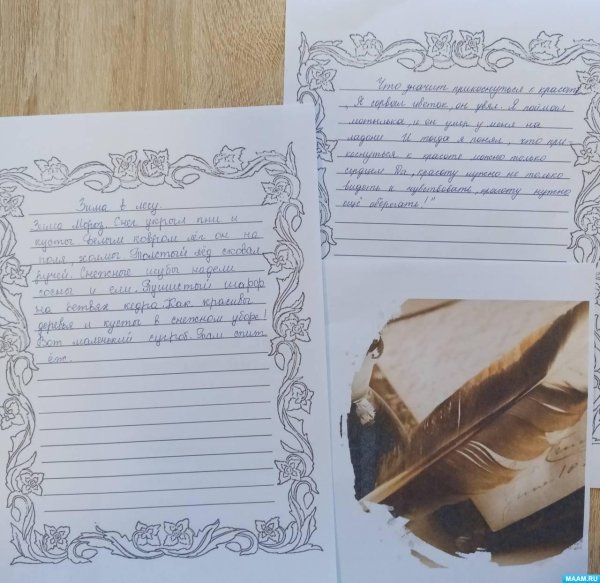 Зима в лесу.
Зима. Мороз. Снег укрыл пни и
кусты. Белым ковром лёг он на
поля, холмы. Толстый лёд сковал
ручей. Снежные шубы надели
сосны и ели. Пушистый шарф
на ветвях кедра. Как красивы
деревья и кусты в снежном уборе!
Вот маленький сугроб. Там спит
ёж.
Что значит прикоснуться к красоте
"Я сорвал цветок, он увял. Я поймал
мотылька, и он умер у меня на
ладони. И тогда я понял, что при
коснуться к красоте можно только
сердцем. Да, красоту нужно не только
видеть и чувствовать, красоту нужно
ещё оберегать!"
MAAM.RU